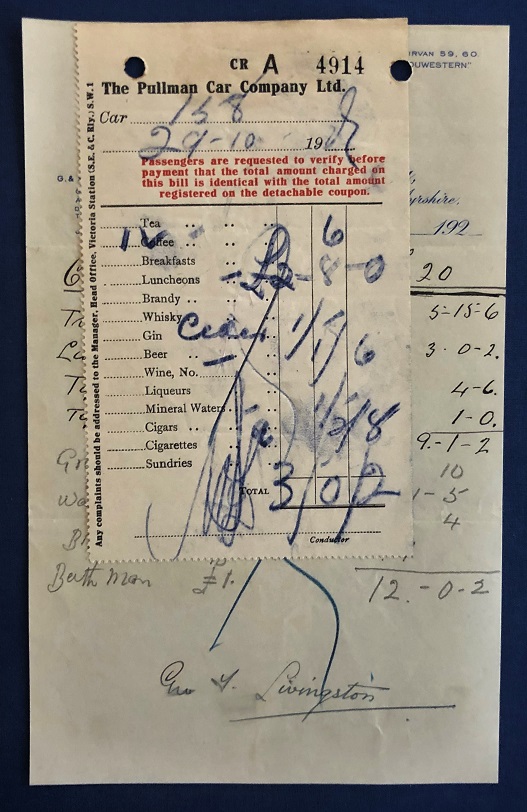 CR A 4914
The Pullman Car Company Ltd.
Car 158
29-10 19
Passengers are requested to verify before
payment that the total amount charged on
this bill is identical with the total amount
registered on the detachable coupon.
Tea 6
Coffee
Breakfasts
Luncheons 8-0
Brandy
Whisky
Gin
Beer
Wine, No.
Liqueurs
Mineral Waters
Cigars
Cigarettes
Sundries
TOTAL 3/0/2
Conductor
Any complaints should be addressed to the Manager, Head Office, Victoria Station (S.E. & C. Rly.) S.W. 1
RVAN 59, 60
OUWESTERN"
G. &
yrshire,
192
20
5-15-6
3-0-2.
4-6.
1-0.
9-1-2
10
1-5
4
Bath Man £1.
12.-0-2
Livingston